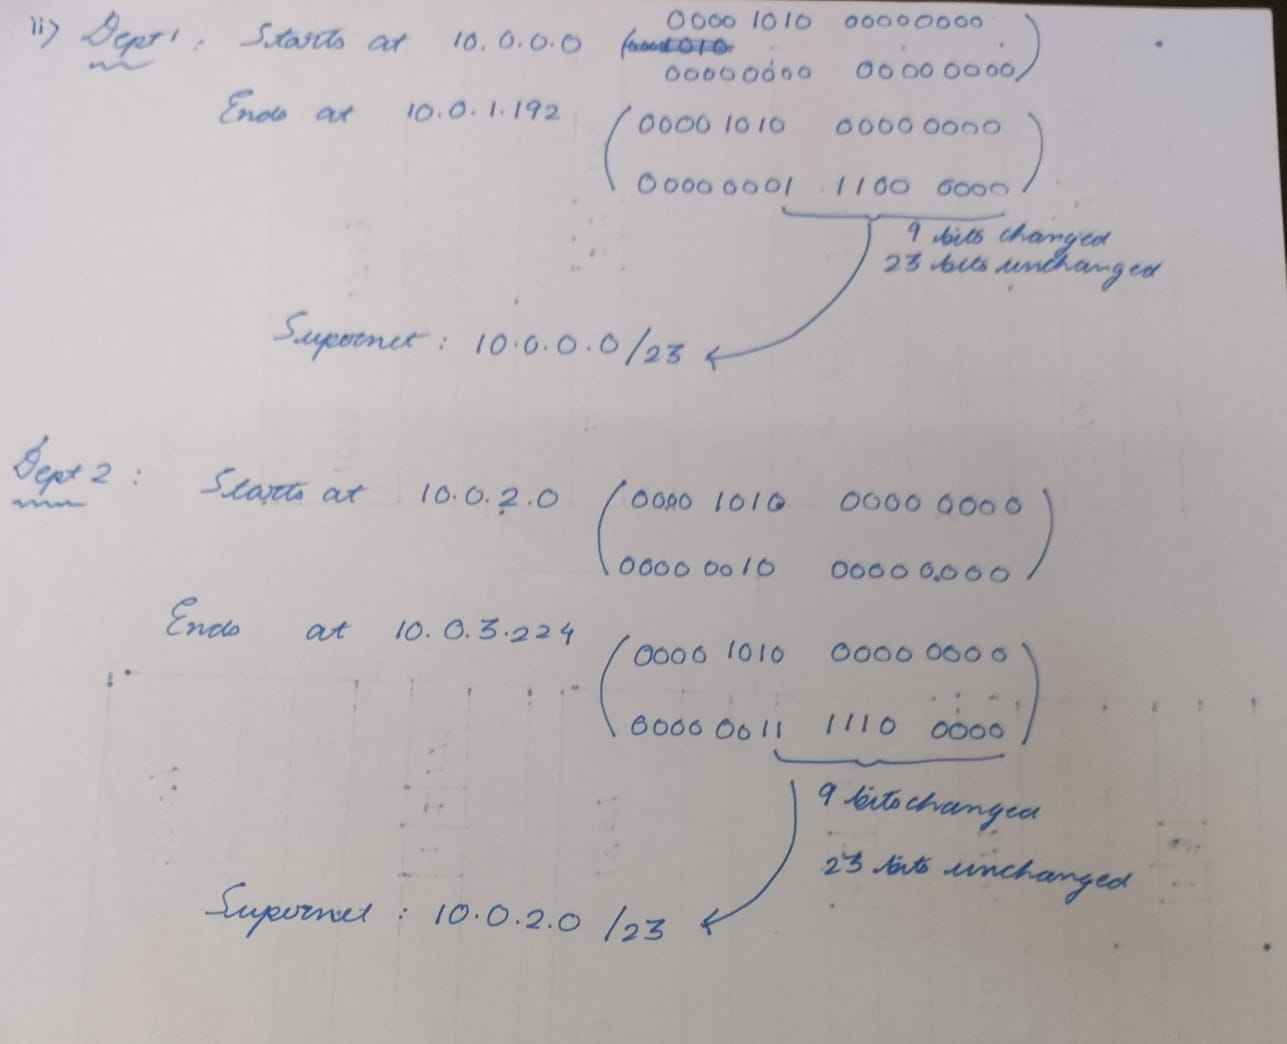 ii) Dept 1: Starts at 10.0.0.0 ( 0000 1010 00000000
00000000 0000 0000 )
Ends at 10.0.1.192 ( 0000 1010 0000 0000
0000 0001 1100 0000 )
9 bits changed
23 bits unchanged
Supernet: 10.0.0.0/23
Dept 2: Starts at 10.0.2.0 ( 0000 1010 0000 0000
0000 0010 0000 0000 )
Ends at 10.0.3.224 ( 0000 1010 0000 0000
0000 0011 1110 0000 )
9 bits changed
23 bits unchanged
Supernet: 10.0.2.0 /23